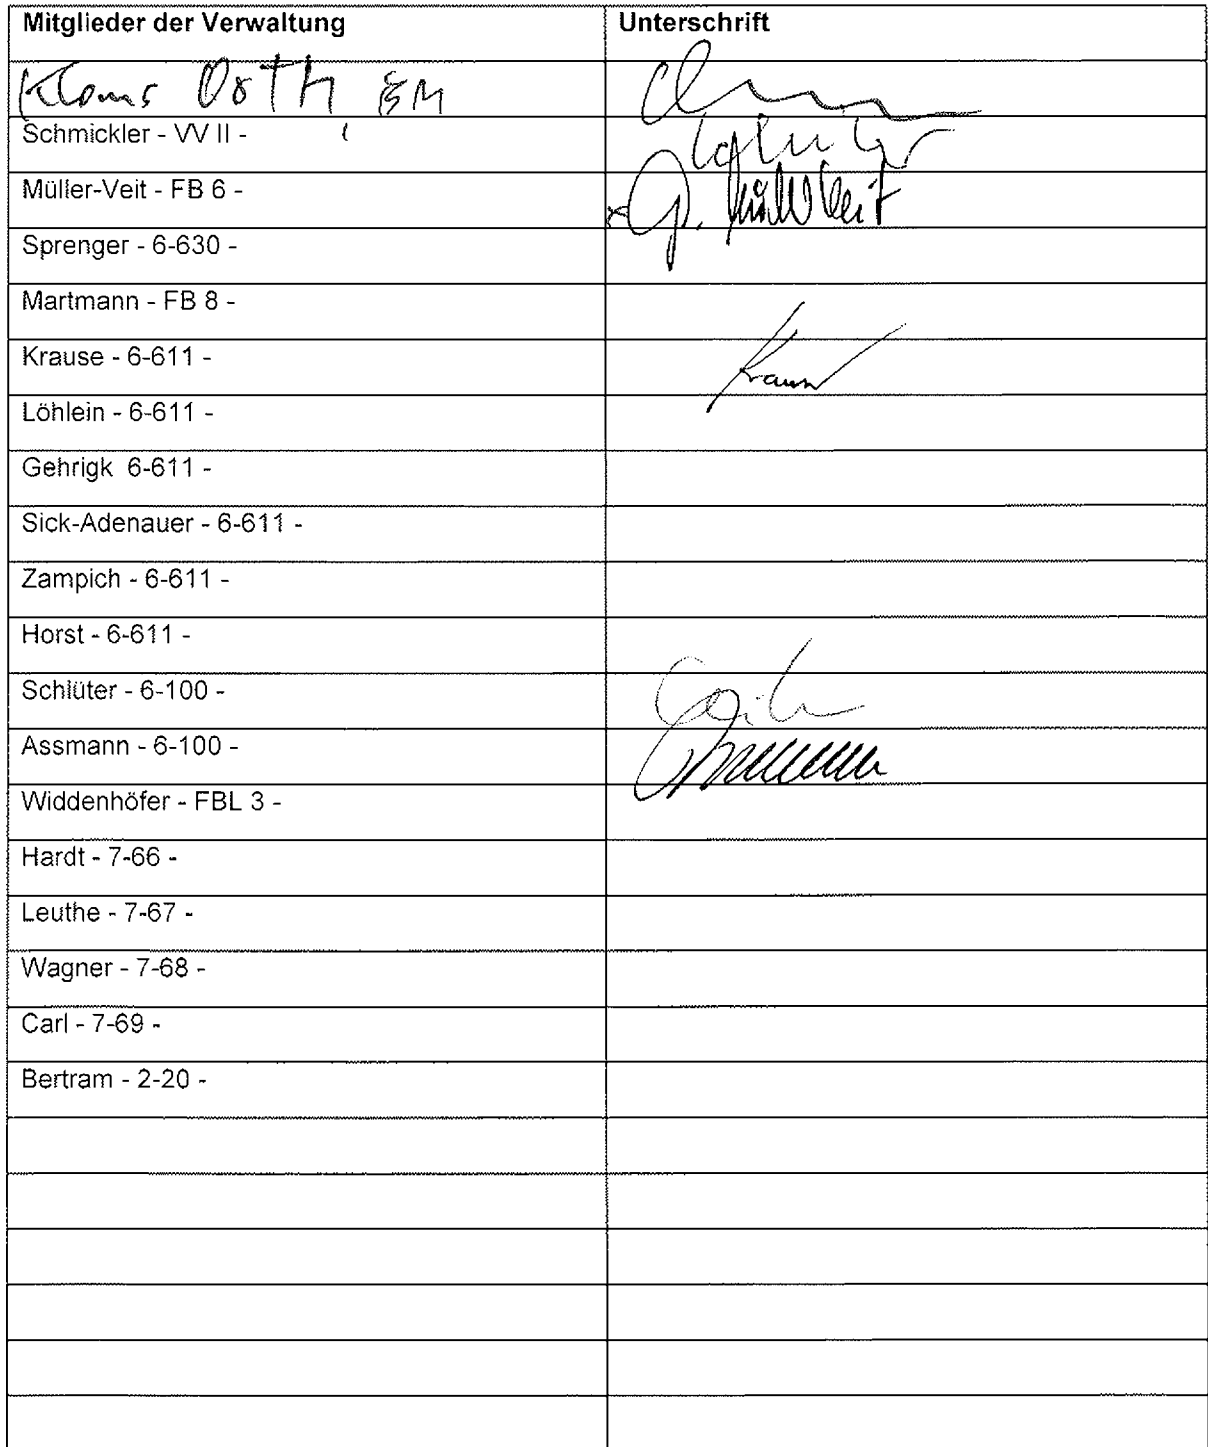 Mitglieder der Verwaltung Unterschrift
Klaus Orth, BM
Schmickler - VV II -
Müller-Veit - FB 6 - G. Müller-Veit
Sprenger - 6-630 -
Martmann - FB 8 -
Krause - 6-611 - Krause
Löhlein - 6-611 -
Gehrigk 6-611 -
Sick-Adenauer - 6-611 -
Zampich - 6-611 -
Horst - 6-611 -
Schlüter - 6-100 -
Assmann - 6-100 -
Widdenhöfer - FBL 3 -
Hardt - 7-66 -
Leuthe - 7-67 -
Wagner - 7-68 -
Carl - 7-69 -
Bertram - 2-20 -